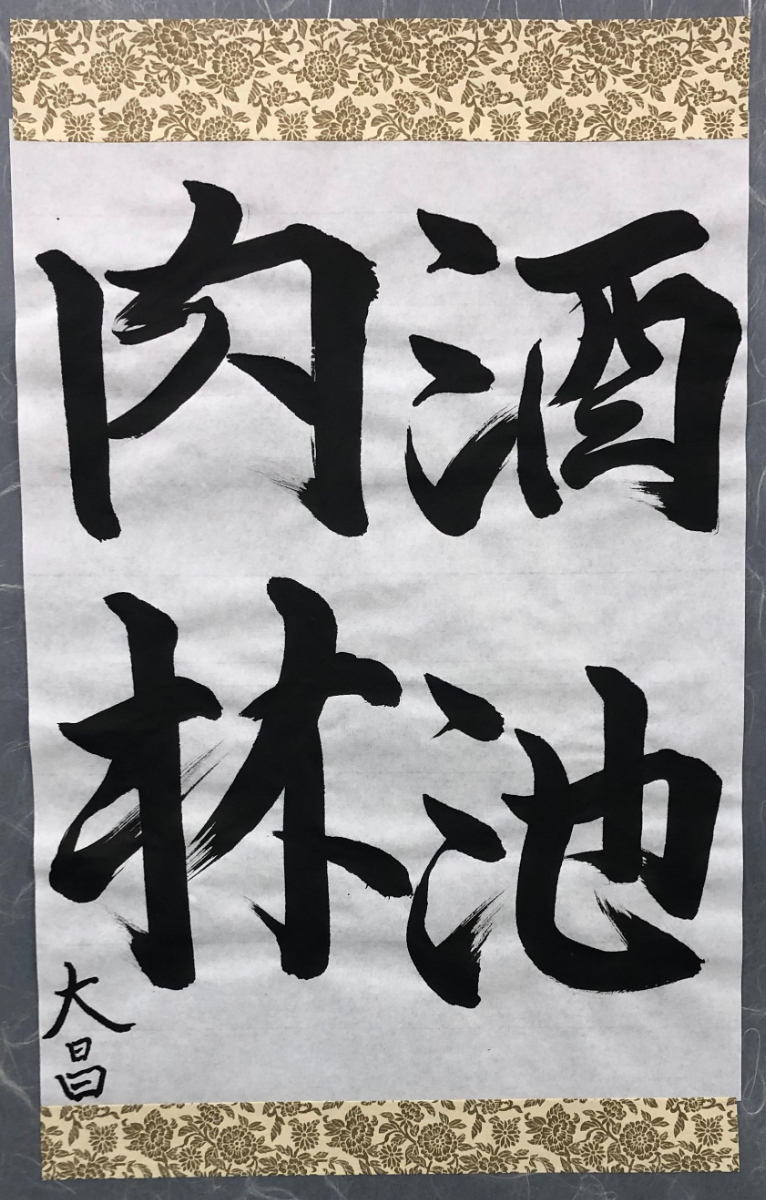 酒池
肉林
大昌